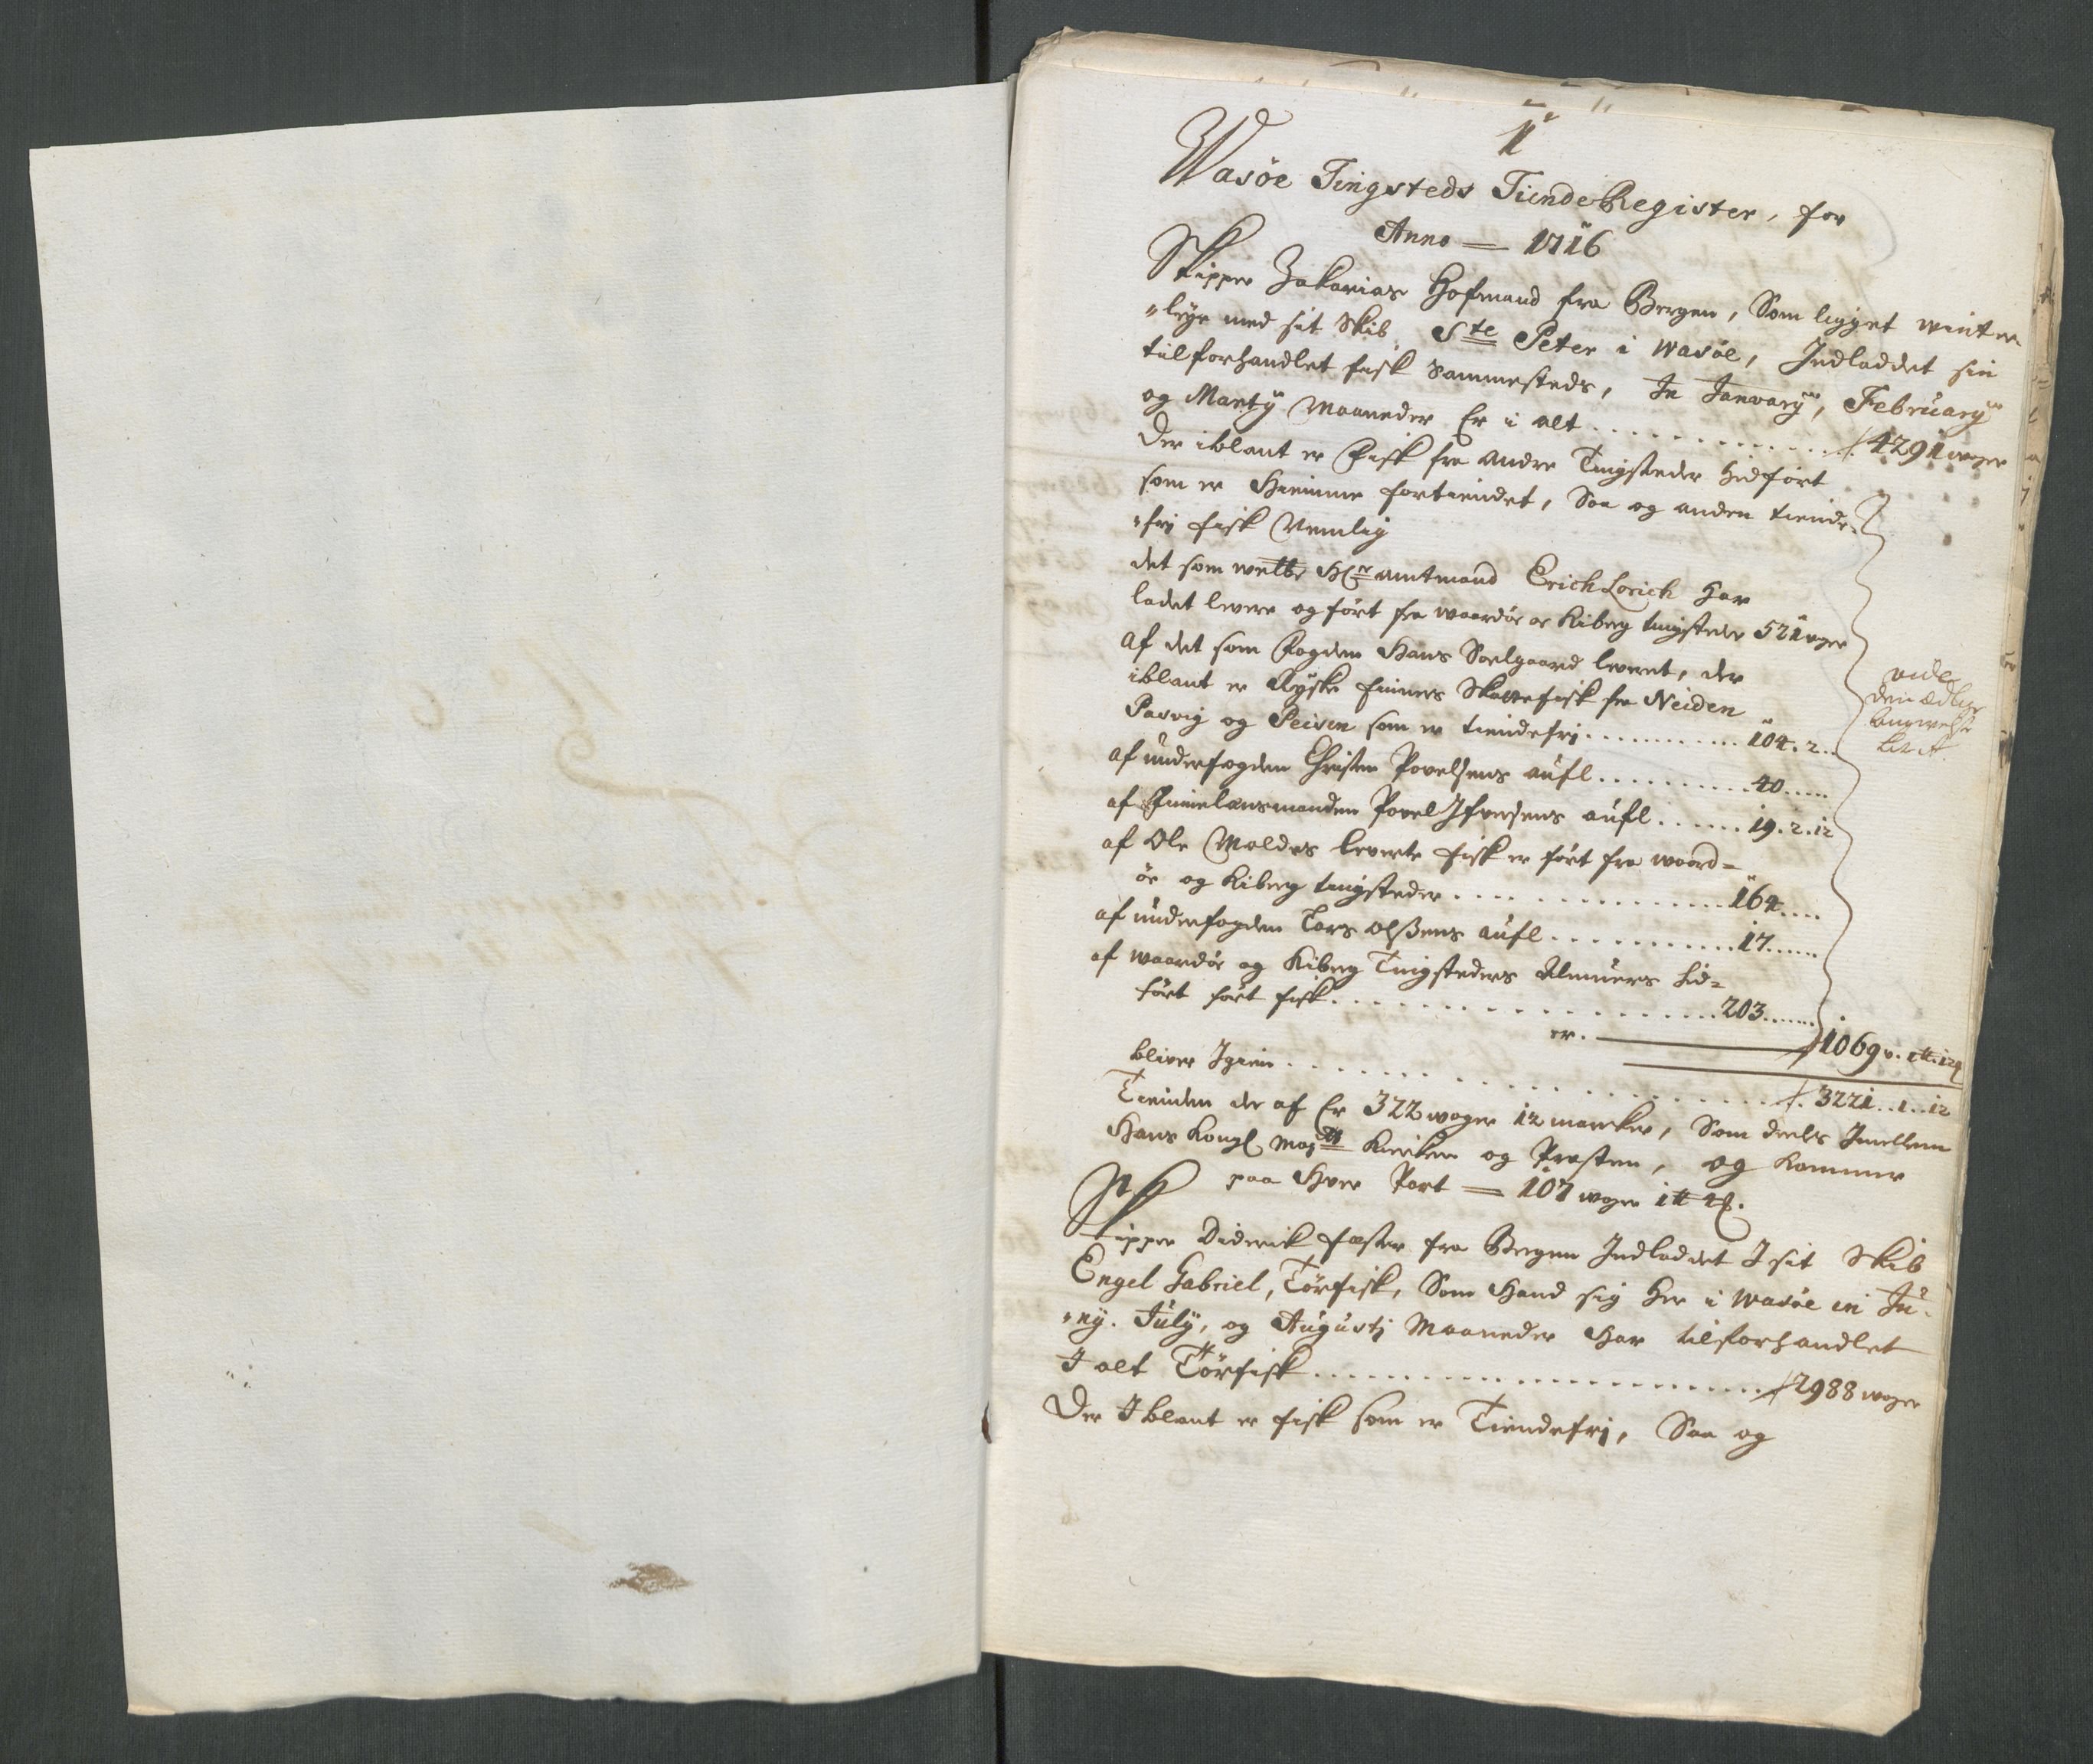 1
Wasöe Tingsteds TiendeRegister, for
Anno — 1716
Skipper Zakarias Hofmand fra Bergen, Som ligget winter
"leye med sit Skib, Ste Peter i Wasöe, Indladdet sin
tilforhandlet fisk sammesteds, In Januarij, Februarij
og Martij Maaneder Er i alt . . . . . . . . . . . . 4291 woger
Der iblant er Fisk fra andre Tingsteder hidfört . . . . .
som er hiemme fortiendet, Saa og anden tiende-
"frj fisk Nemlig
det som welb: Hr: amtmand Erich Lorich har
ladet levere og fört fra waardöe oc Kiberg tingsteder 521 woger
Af det som Fogden Hans Soelgaard leveret, der
iblant er Ryske finners Skattefisk fra Neiden
Pasvig og Peisen som er tiendefrj . . . . . . . . . . . 104. 2 . .
af underfogden Christen Povelsens aufl . . . . . . . . . . 40 . . . .
af Finnelænsmanden Povel Ifversens aufl . . . . . . 19. 2. 12
af Ole Moldes leverte fisk er fört fra waard=
öe og Kiberg tingsteder . . . . . . . . . . . . . . . 164 . . . .
af underfogden Lars Olssens aufl . . . . . . . . . . . 17 . . . . .
af waardöe og Kiberg Tingsteders Almuers hid=
fört fört fisk . . . . . . . . . . . . . . . . . . 203 . . . . . .
vide
den
Lit A
er. — 1069 v. 1 12
bliver Igien . . . . . . . . . . . . . . . . . . . . . 3221 . . 1 . . 12
Tienden der af Er 322 woger 12 marcker, Som deeles Imellem
Hans Kongl Maytt Kircken og Præsten, og kommer
paa Hver Part = 107 woger 1
Skipper Diderik Faster fra Bergen Indladdet I sit Skib
Engel Gabriel, Törfisk, Som Hand sig her i Wasöe in Ju-
"nij. Julij, og Augustj Maaneder Har tilforhandlet
I alt Törfisk . . . . . . . . . . . . . . . . . . . . . . . 2988 woger
Der Iblant er fisk som er Tiendefrj, Saa og